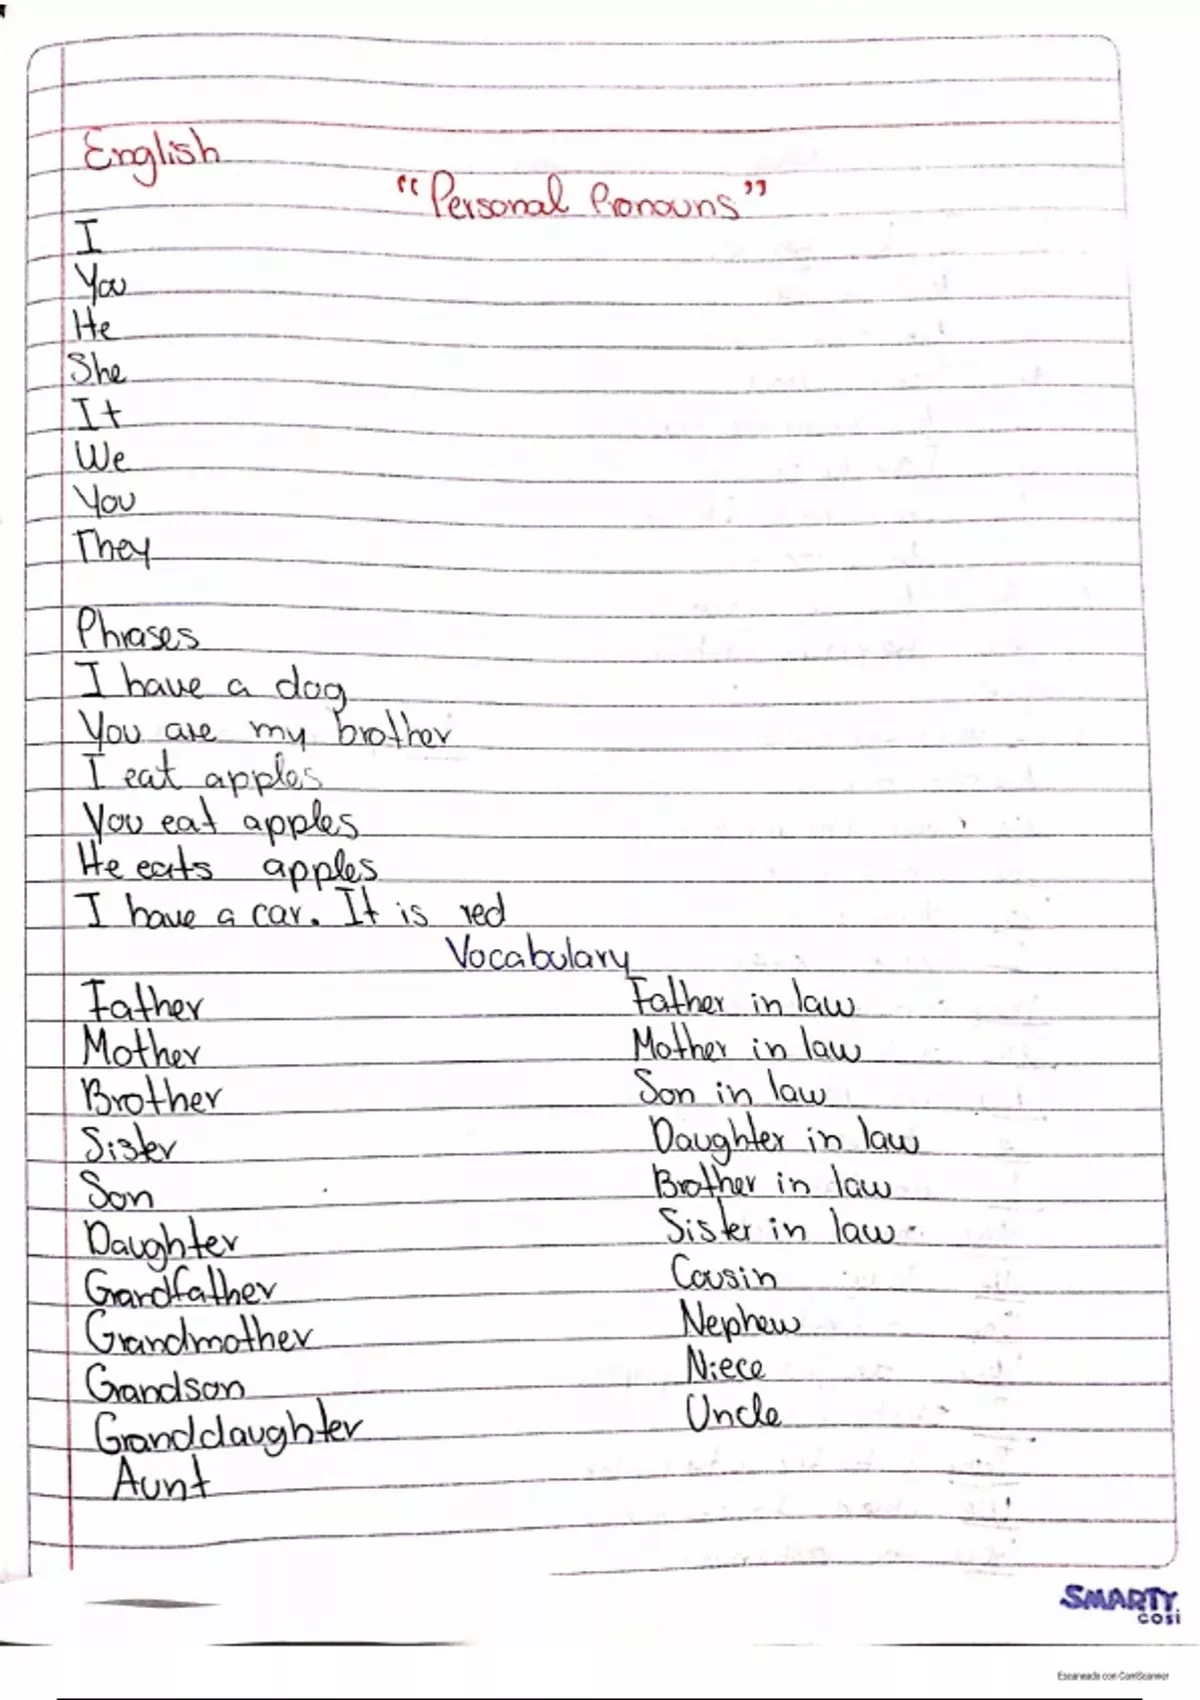 English
"Personal Pronouns"
I
You
He
She
It
We
You
They
Phrases
I have a dog
You are my brother
I eat apples
You eat apples
He eats apples
I have a car. It is red
Vocabulary
Father
Mother
Brother
Sister
Son
Daughter
Grandfather
Grandmother
Grandson
Granddaughter
Aunt
Father in law
Mother in law
Son in law
Daughter in law
Brother in law
Sister in law
Cousin
Nephew
Niece
Uncle
SMARTY
COSI
Escaneado con CamScanner